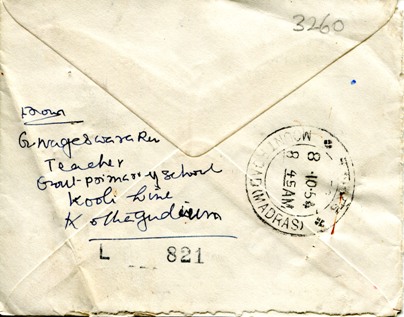 3260
From
G. Nageswara Rao
Teacher
Govt-primary school
Kooli Line
Kothagudium
L 821
MOUNT
8-10-54
8 45AM
(MADRAS)